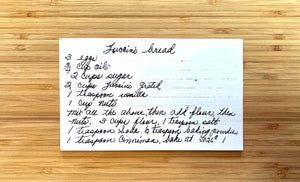 Zucchini bread
3 eggs
cup oil
2 cups sugar
2 cups zucchini grated
1 teaspoon vanilla
1 cup nuts
mix all the above, then add flour, then
nuts. 3 cups flour, 1 teaspoon salt
1 teaspoon soda, teaspoon baking powder
1 teaspoon cinnamon, bake at 325°